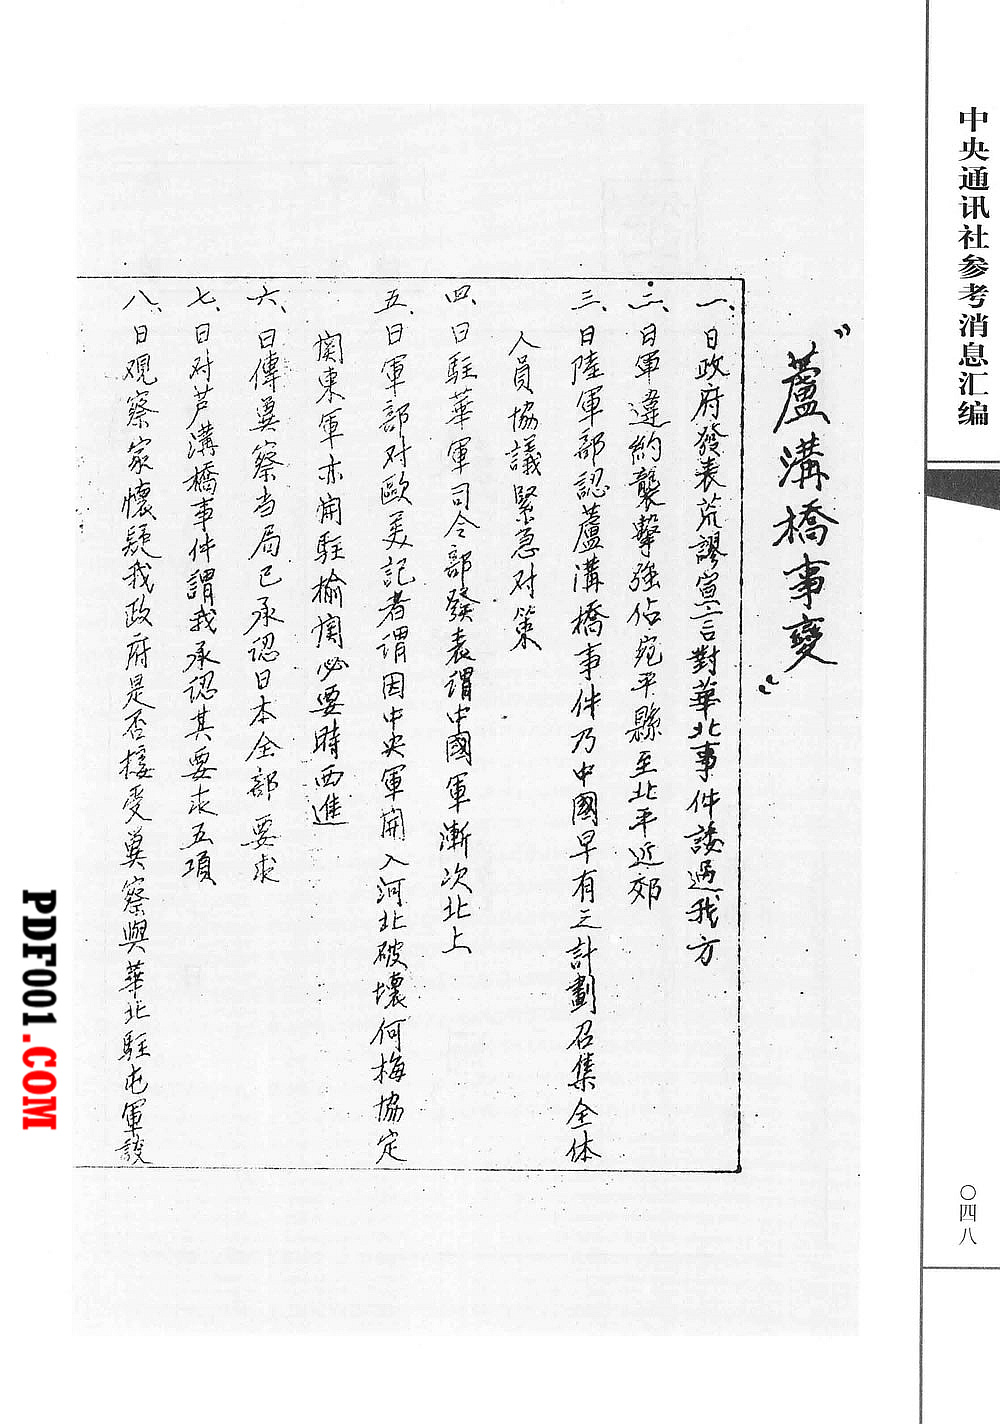 中央通讯社参考消息汇编
〇四八
"蘆溝橋事變"
一、日政府發表荒謬宣言對華北事件諉過我方
二、日軍違約襲擊強佔宛平縣至北平近郊
三、日陸軍部認蘆溝橋事件乃中國早有之計劃召集全体
人員協議緊急对策
四、日駐華軍司令部發表謂中國軍漸次北上
五、日軍部对歐美記者謂因中央軍開入河北破壞何梅協定
関東軍亦開駐榆関必要時西進
六、日傳冀察当局已承認日本全部要求
七、日对芦溝橋事件謂我承認其要求五項
八、日观察家懷疑我政府是否接受冀察與華北駐屯軍談
PDF001.COM